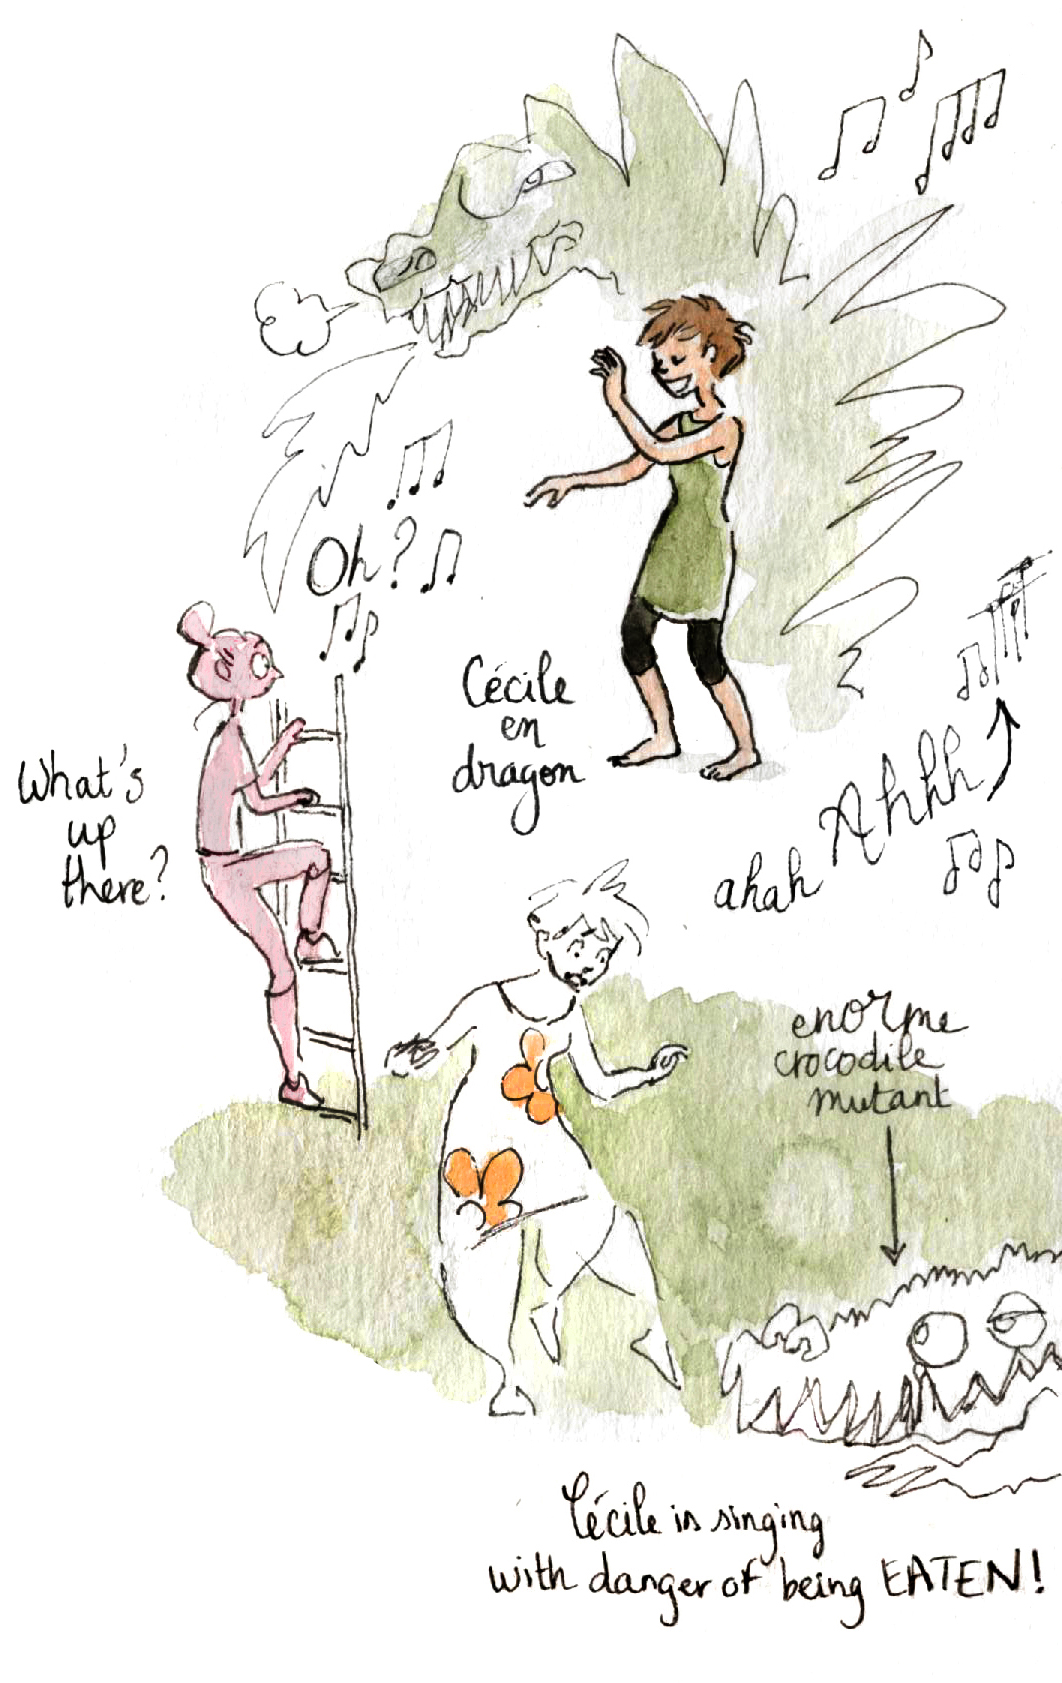 Oh?
Cécile
en
dragon
What's
up
there?
ahah Ahhh
enorme
crocodile
mutant
Cécile is singing
with danger of being EATEN!